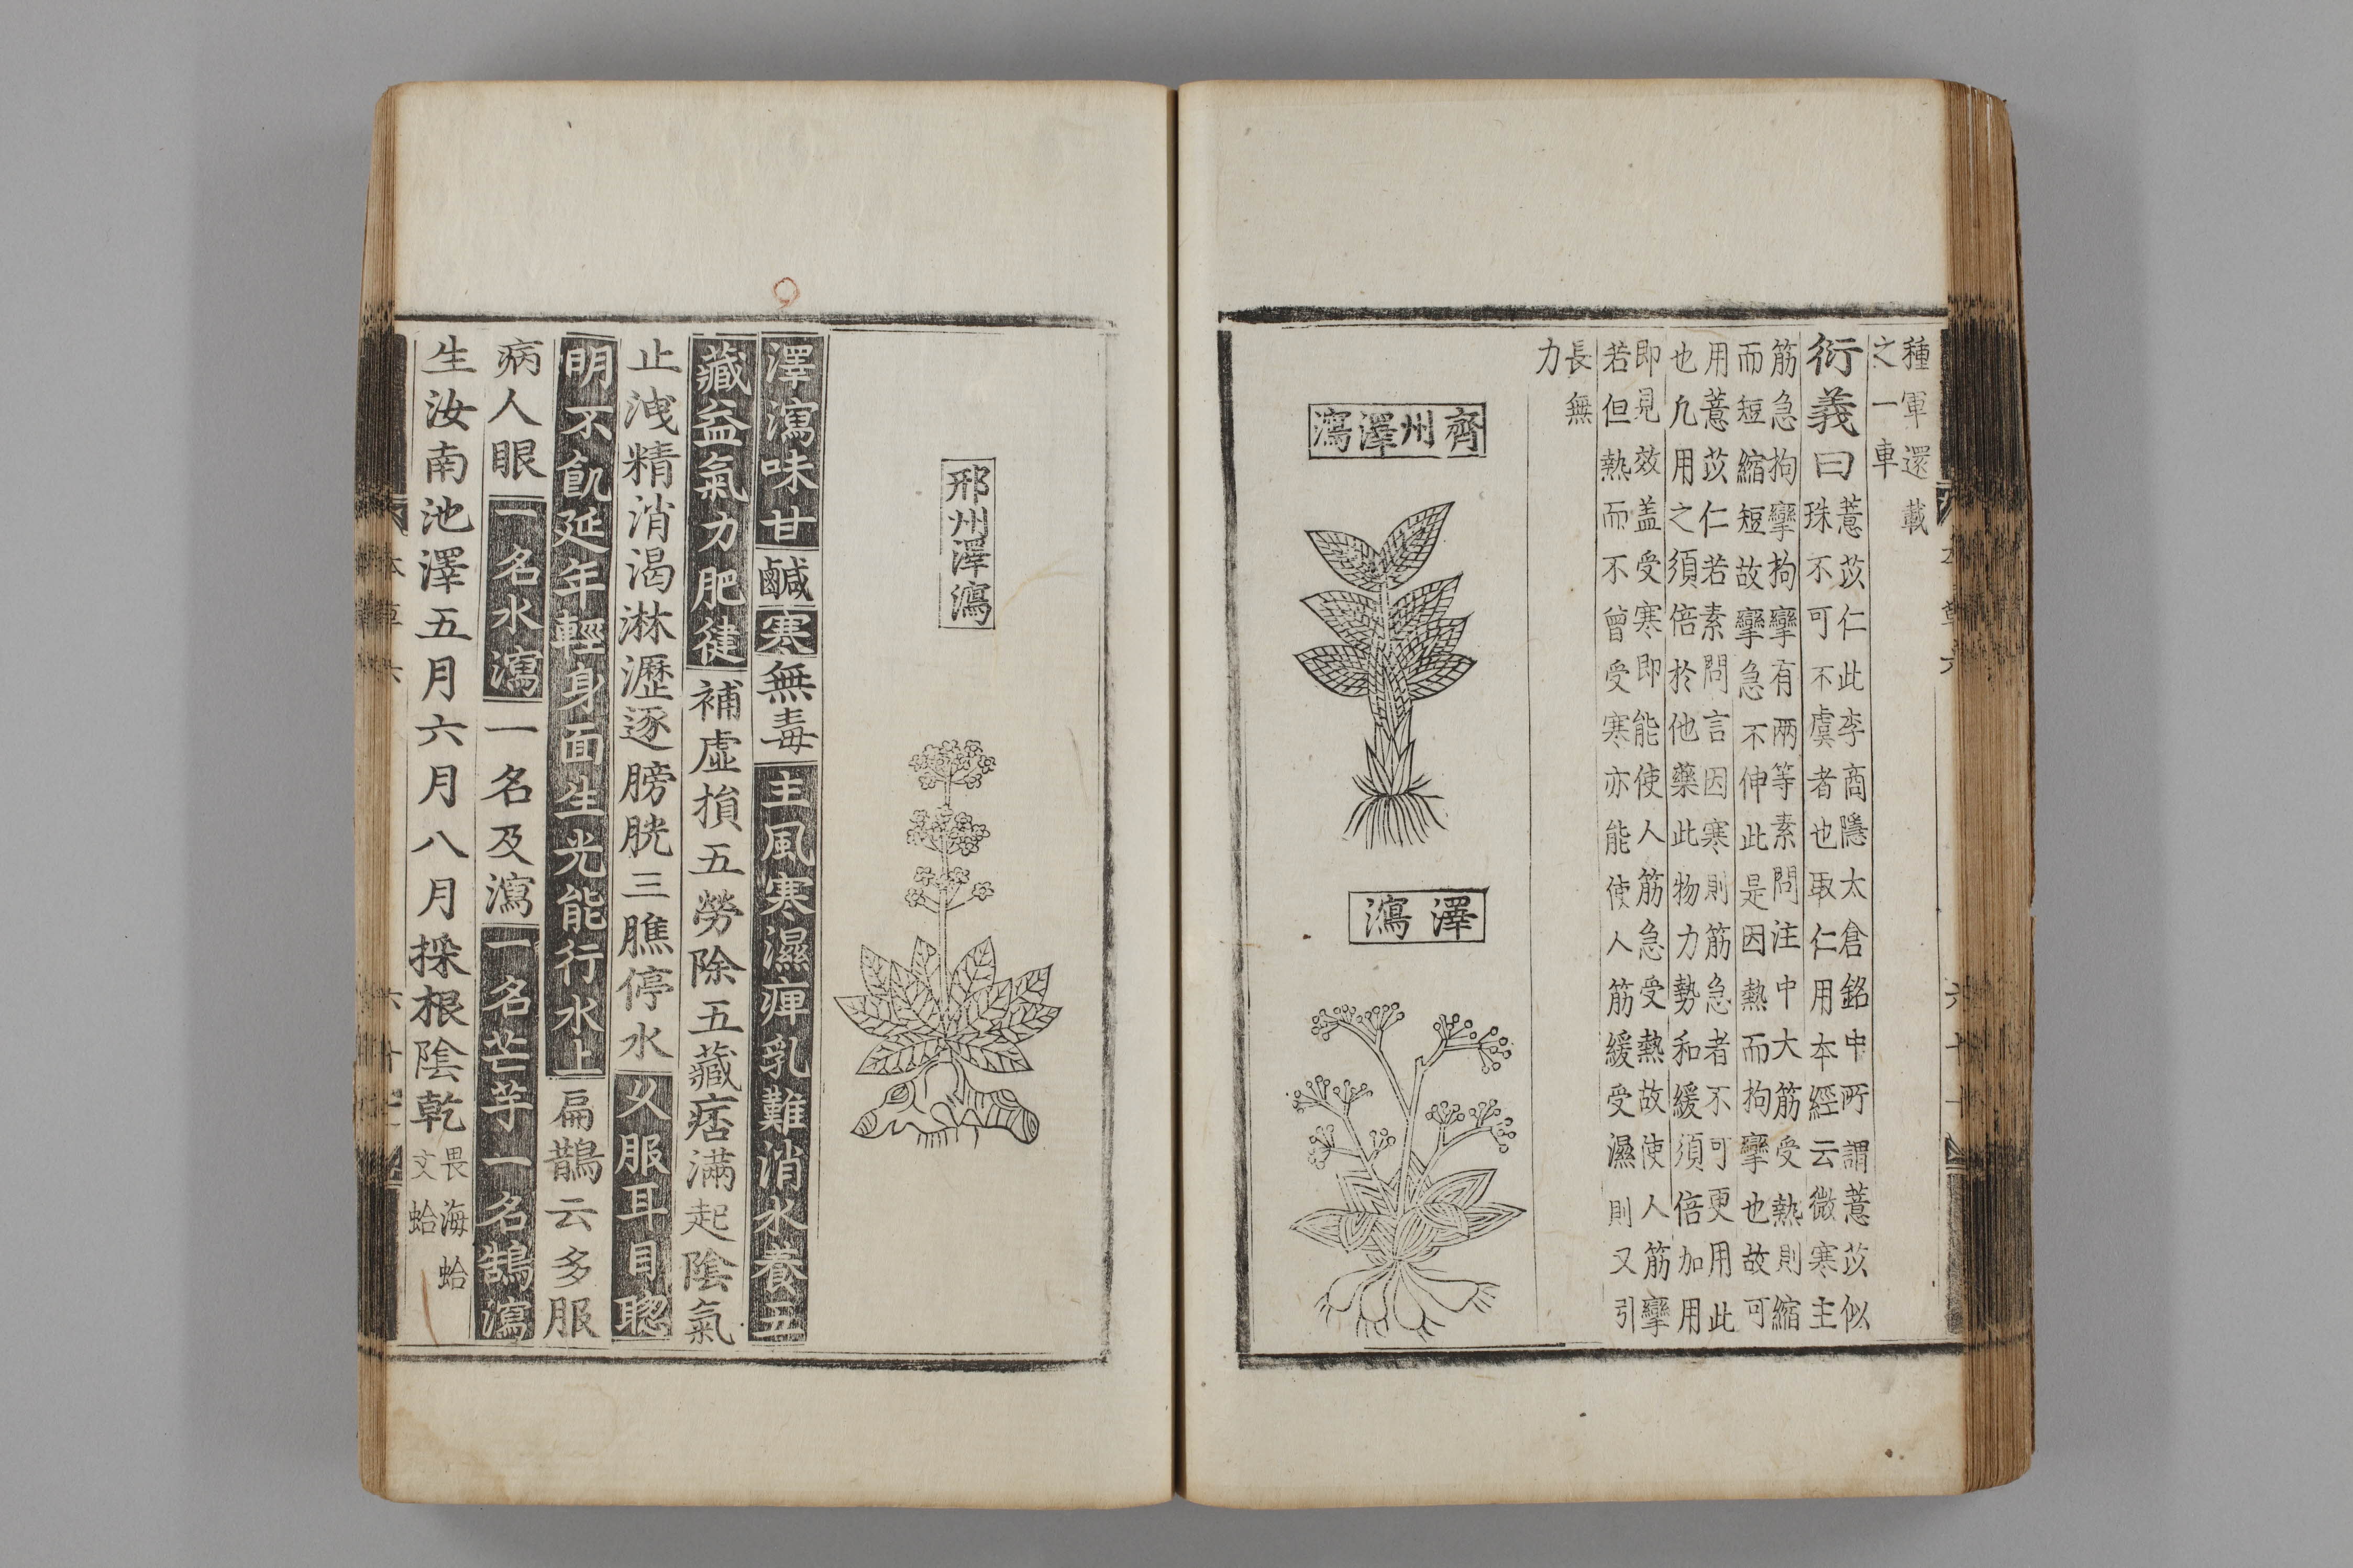 種軍還載
之一車
衍義曰
薏苡仁此李商隱太倉銘中所謂薏苡似
珠不可不虞者也取仁用本經云微寒主
筋急拘攣拘攣有两等素問注中大筋受熱則縮
而短縮短故攣急不伸此是因熱而拘攣也故可
用薏苡仁若素問言因寒則筋急者不可更用此
也凢用之須倍於他藥此物力勢和緩須倍加用
即見效盖受寒即能使人筋急受熱故使人筋攣
若但熱而不曾受寒亦能使人筋緩受濕則又引
長無
力
齊州澤瀉
澤瀉
邢州澤瀉
澤瀉味甘鹹寒無毒主風寒濕痺乳難消水養五
藏益氣力肥健補虛損五勞除五藏痞滿起陰氣
止洩精消渴淋瀝逐膀胱三膲停水乆服耳目聦
明不飢延年輕身面生光能行水上扁鵲云多服
病人眼一名水瀉一名及瀉一名芒芋一名鵠瀉
生汝南池澤五月六月八月採根陰乾
畏海蛤
文蛤